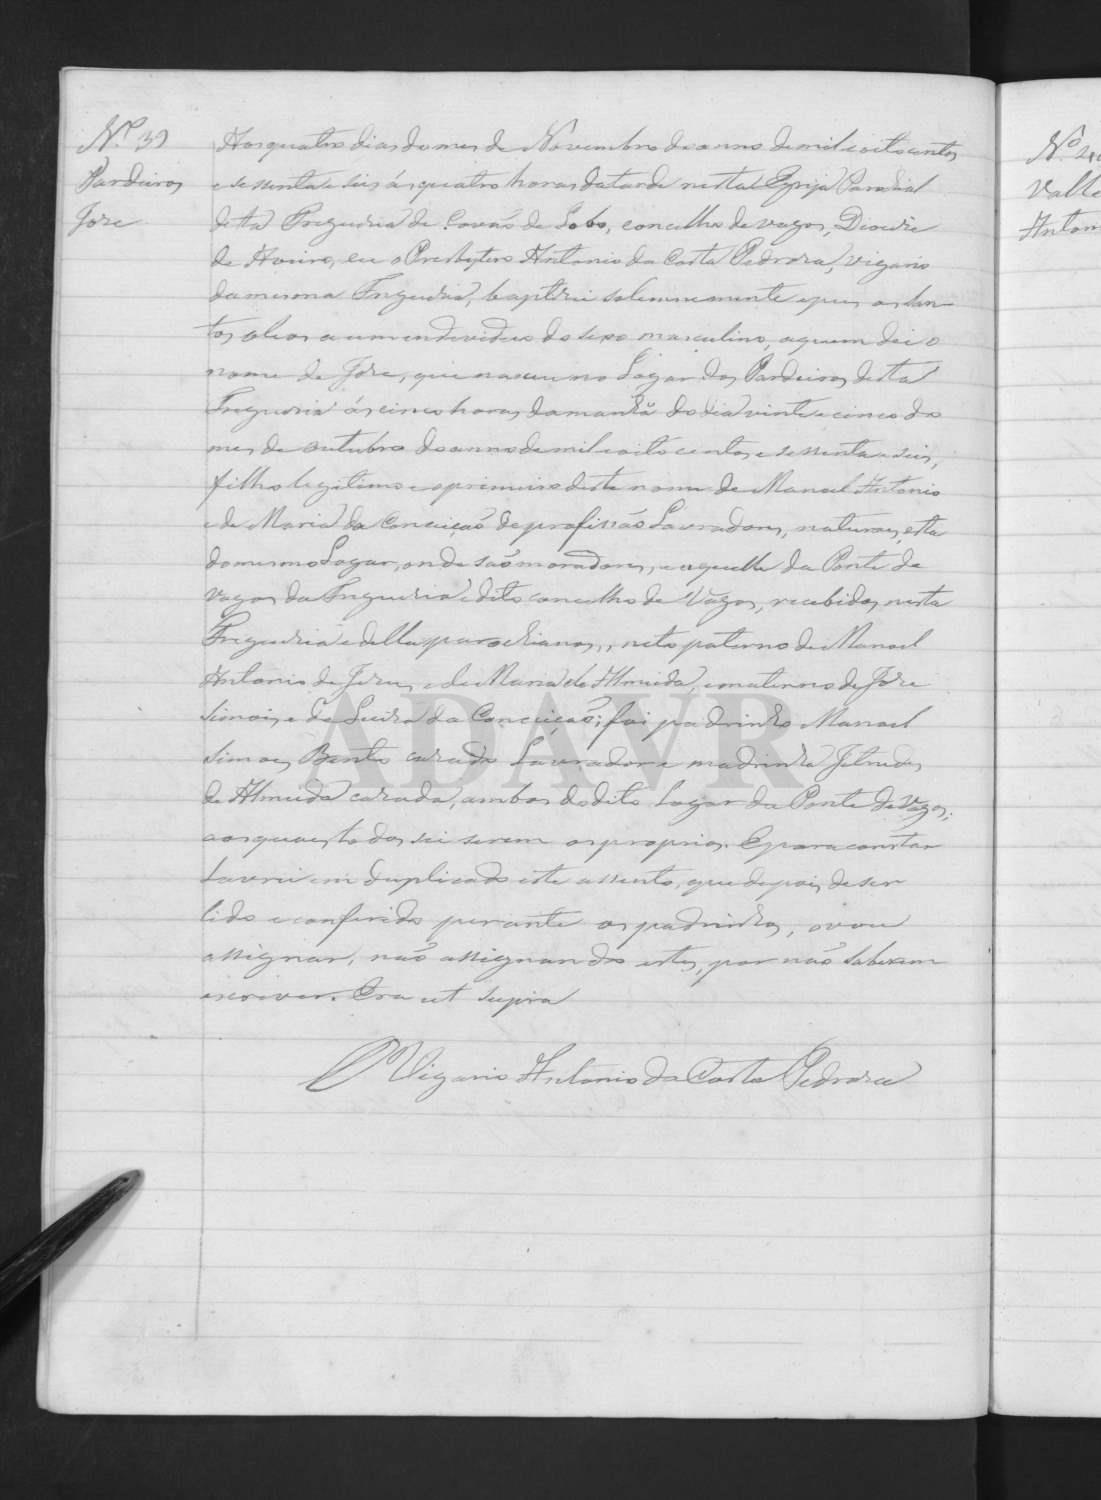 Nº 39
Pardeiros
Joze
Aos quatro dias do mes de Novembro do anno de mil e oito centos
e sessenta e seis ás quatro horas da tarde nesta Egrija Parochial
desta Freguesia de Covaõ do Lobo, concelho de Vagos, Diocese
de Aveiro, eu o Presbytero Antonio da Costa Pedroza, vigario
da mesma Freguesia, baptizei solemnemente e pus os San-
tos oleos a um endeviduo do sexo masculino, aquem dei o
nome de Joze, que nasceu no Logar dos Pardeiros desta
Freguesia ás cinco horas da manhã do dia vinte e cinco do
mes de outubro do anno de mil e oito centos e sessenta e seis,
filho legitimo e o primeiro deste nome de Manoel Antonio
e de Maria da Conceiçaõ de profissaõ Lavradores, naturaes, esta
do mesmo Logar, onde saõ moradores, e aquelle da Ponte de
Vagos da Freguesia e dito concelho de Vagos, recebidos nesta
Freguesia e della parochianos, neto paterno de Manoel
Antonio de Jezus e de Maria de Almeida, e materno de Joze
Simois e de Luiza da Conceiçaõ; foi padrinho Manoel
Simoes Bento cazado Lavrador e madrinha
de Almeida cazada, ambos do dito Logar da Ponte de Vagos,
aos quaes todos sei serem os proprios. E para constar
Lavrei em duplicado este assento, que depois de ser
lido e conferido perante os padrinhos, o vou
assignar, naõ assignando estes, por naõ saberem
escrever. Era ut supra
O Vigario Antonio da Costa Pedroza
ADAVR
Nº 40
Valle
Anton